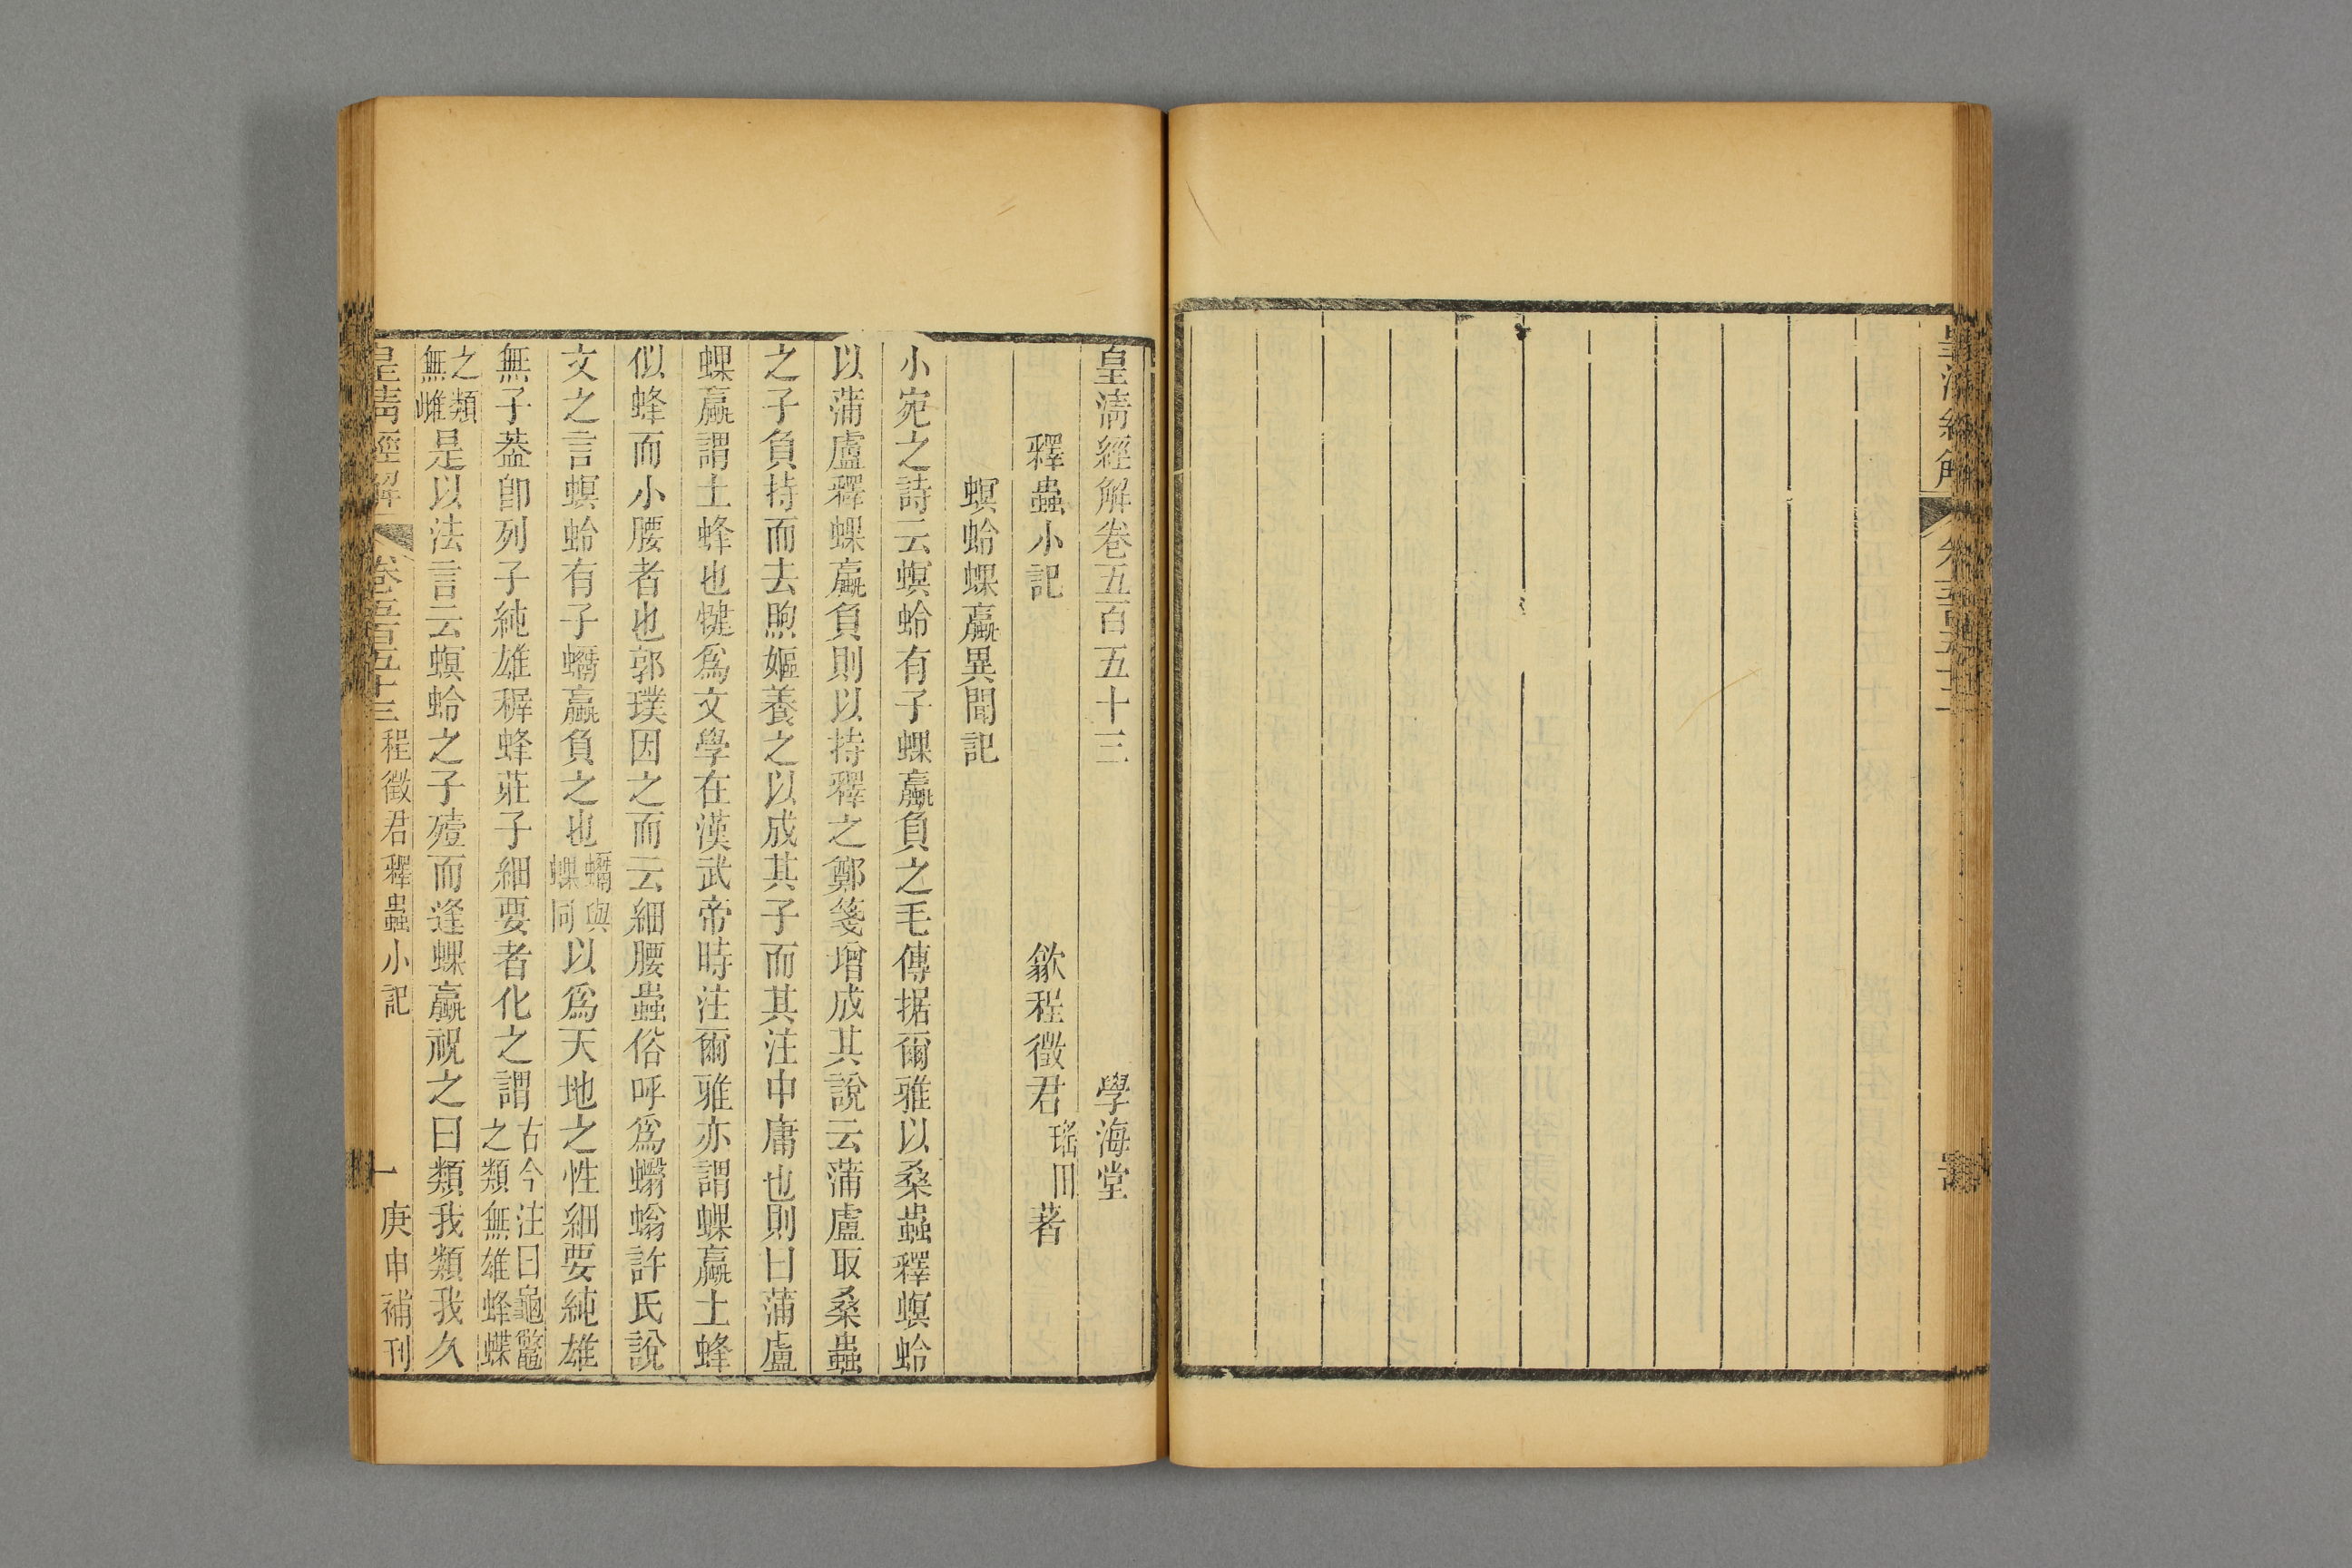 皇清經解卷五百五十三 學海堂
釋蟲小記 歙程徵君瑤田著
螟蛉蜾蠃異聞記
小宛之詩云螟蛉有子蜾蠃負之毛傳据爾雅以桑蟲釋螟蛉
以蒲盧釋蜾蠃負則以持釋之鄭箋增成其說云蒲盧取桑蟲
之子負持而去煦嫗養之以成其子而其注中庸也則曰蒲盧
蜾蠃謂土蜂也犍爲文學在漢武帝時注爾雅亦謂蜾蠃土蜂
似蜂而小腰者也郭璞因之而云細腰蟲俗呼爲蠮螉許氏說
文之言螟蛉有子蠣蠃負之也蠣與蜾同以爲天地之性細要純雄
無子葢卽列子純雄穉蜂莊子細要者化之謂古今注曰龜鼈之類無雄蜂蝶
之類無雌是以法言云螟蛉之子殪而逢蜾蠃祝之曰類我類我久
皇清經解 卷五百五十三 程徵君釋蟲小記 一 庚申補刊